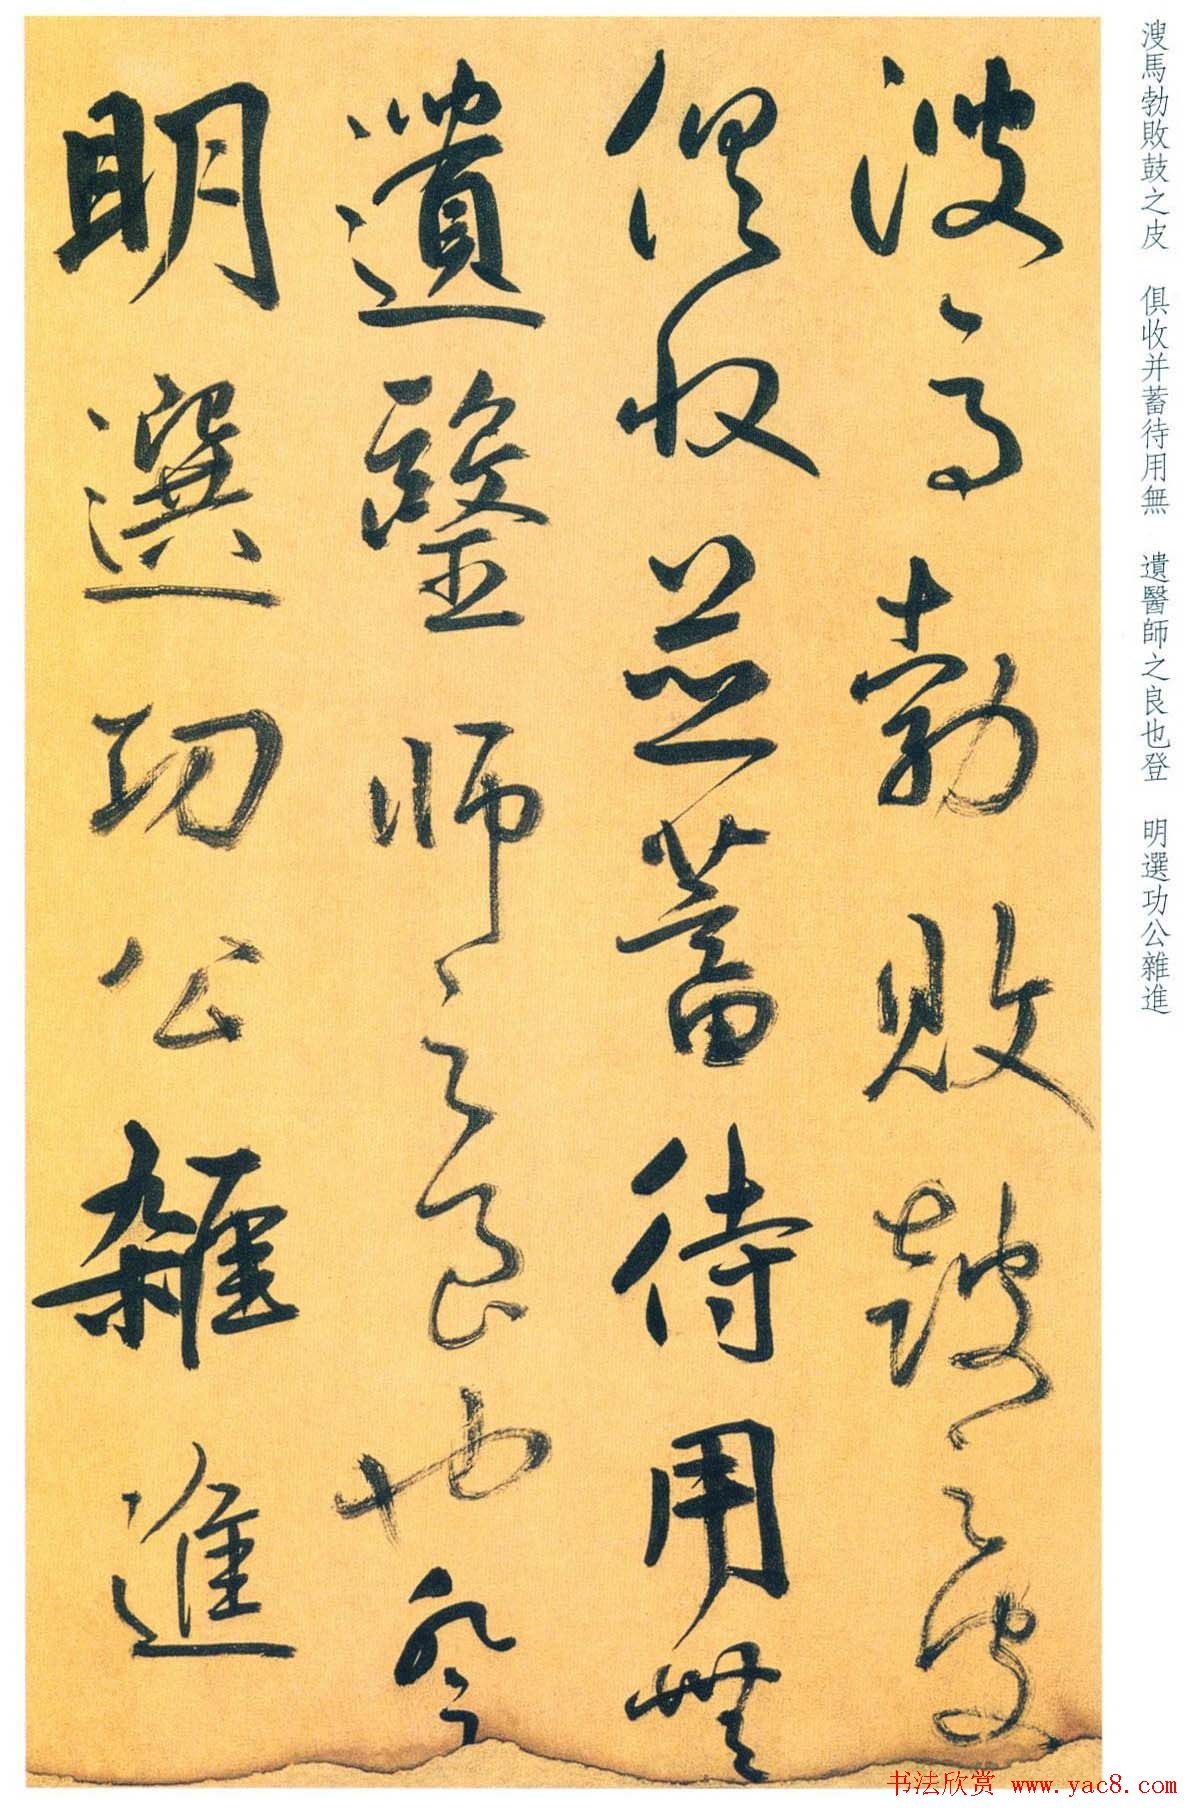 溲馬勃敗鼓之皮　俱收并蓄待用無　遺醫師之良也登　明選功公雜進
溲馬勃敗鼓之皮
俱收並蓄待用無
遺醫師之良也登
明選功公雜進
书法欣赏 www.yac8.com